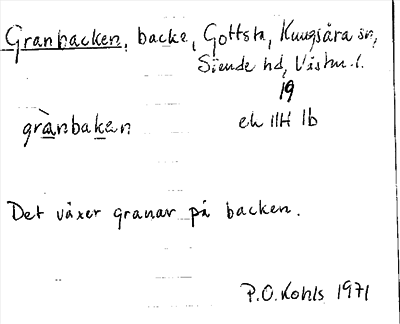 Granbacken, backe, Gottsta, Kungsåra sn,
Siende hd, Västm. l.
19
grànbaken
ek IIH 1b
Det växer granar på backen.
P.O. Kohls 1971